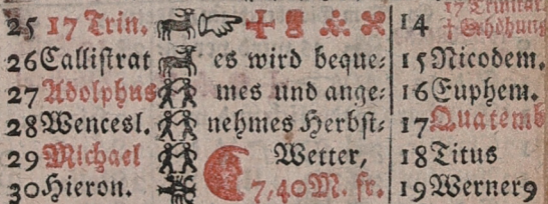 25 17 Trin. 14 17 Trinitat.
† Erhöhung
26 Callistrat es wird beque⸗ 15 Nicodem.
27 Adolphus mes und ange⸗ 16 Euphem.
28 Wencesl. nehmes Herbst⸗ 17 Quatemb
29 Michael Wetter, 18 Titus
30 Hieron. 7,40 M. fr. 19 Werner9